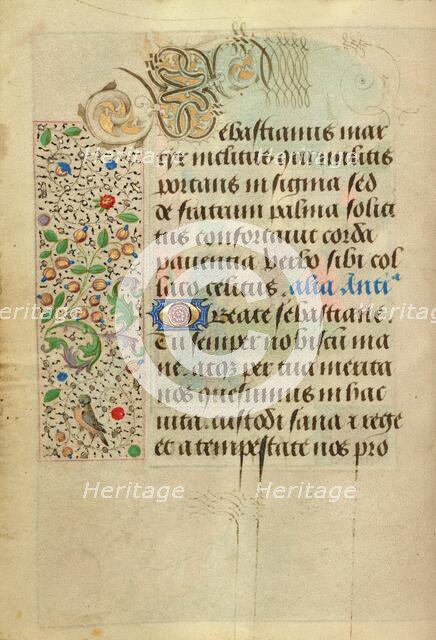 Sebastianus mar
tyr inclitus qui militis
portans insigma sed
de fratrum palma solici
tus confortavit corda
paventia verbo sibi col
lato celitus. Alia Anti
O Beate sebastiane.
Tu semper nobiscū ma
ne. atqz per tua merita
nos quesumus in hac
vita. custodi sana et rege
et a tempestate nos pro
Heritage
Heritage
Heritage
Heritage
Heritage
Heritage